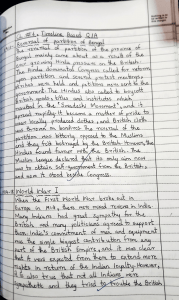 Timeline Based Q/A
Reversal of partition of Bengal
The reversal of partition of the province of
Bengal mainly came about as a result of the
ever growing Hindu pressure on the British.
The Hindu dominated Congress called for national
upon partition and several protest meetings
were held and petitions were sent to the
government. The Hindus also called to boycott
British goods, titles and institutes which
resulted in the Swadeshi Movement, and it
spread rapidly. It became a matter of pride to
use locally produced clothes and British cloth
was burned in bonfires. The reversal of the
partition was bitterly opposed by the Muslims
and they felt betrayed by the British. However, the
Hindus found favour with the British. The
Muslim League declared that its only aim now
was to obtain self-government from the British,
and soon it stood beside Congress.
World War I
When the First World War broke out in
Europe in 1914, there were mixed views in India.
Many Indians had great sympathy for the
British and many politicians agreed to support
them. India's commitment of men and equipment
was the single largest contribution from any
part of the British Empire, and it was clear
that it was expected from them to extend more
rights in return of the Indian loyalty. However,
it is also true that not all Indians were
sympathetic and they tried to trouble the British